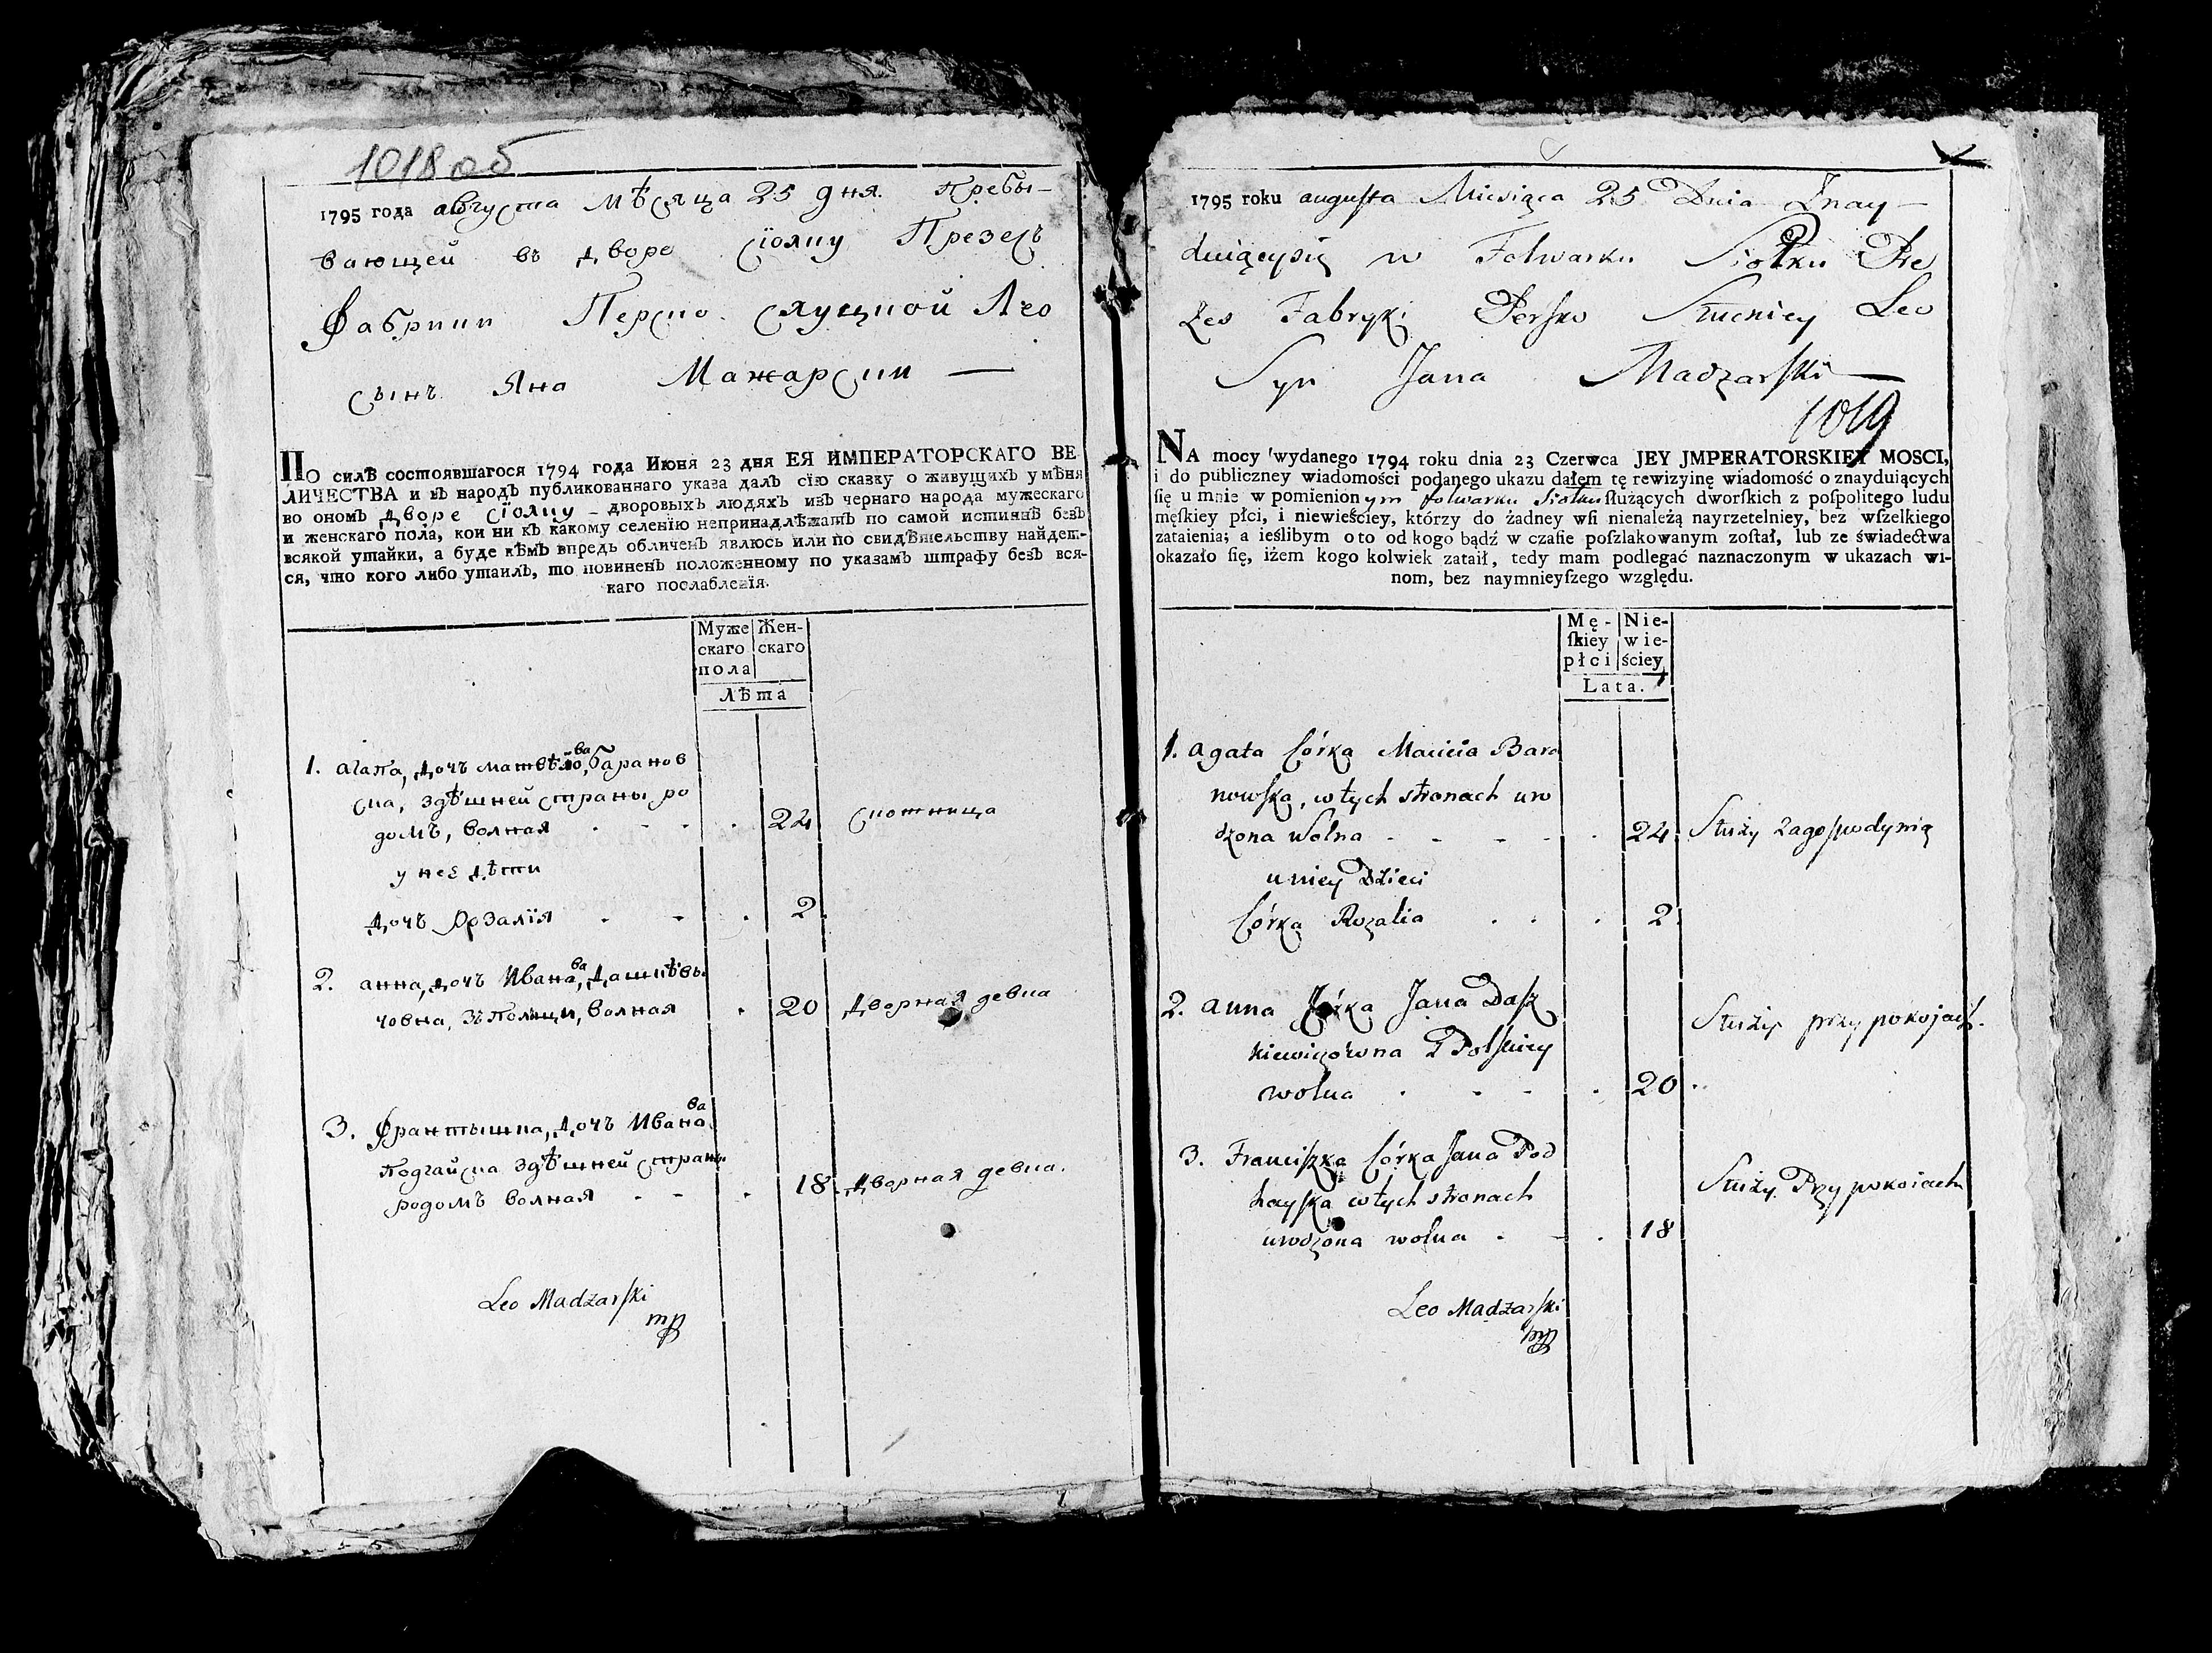 1018 об
1795 года августа мѣсяца 25 дня. Пребы-
вающей въ дворе Сіолку Презесъ
Фабрики Перско Слуцкой Лео
сынъ Яна Мажарски —
ПО силѣ состоявшагося 1794 года Июня 23 дня ЕЯ ИМПЕРАТОРСКАГО ВЕ
ЛИЧЕСТВА и въ народъ публикованнаго указа далъ сїю сказку о живущихъ у мѣня
во ономъ дворе Сіолку – дворовыхъ людяхъ изъ чернаго народа мужескаго
и женскаго пола, кои ни къ какому селенїю непринадлѣжатъ по самой истиннѣ безъ
всякой утайки, а буде кѣмъ впредь обличенъ явлюсь или по свидѣтельству найдет-
ся, что кого либо утаилъ, то повиненъ положенному по указамъ штрафу безъ вся-
каго послабленїя.
Муже Жен-
скаго скаго
пола
Лѣта
1. Агата, дочъ Матвѣева, Баранов
ска, здѣшней страны ро
домъ, волная . - . . 24 скотница
у неё дѣти
дочъ Розалія . - . 2.
2. Анна, дочъ Иванова, Дашкѣви
човна, зъ Полщи, волная . 20 дворная девка
3. Франтышка, дочъ Иванова
Подгайска здѣшней страны
родомъ волная - - . 18. дворная девка.
Leo Madżarſki
mp
1795 roku auguſta Miesiąca 25 Dnia Znay-
duiącysię w Folwarku Siołku Pre
zes Fabryki Perſko Słuckiey Leo
Syn Jana Madzarſki —
1019
NA mocy wydanego 1794 roku dnia 23 Czerwca JEY JMPERATORSKIEY MOSCI,
i do publiczney wiadomości podanego ukazu dałem tę rewizyinę wiadomość o znayduiących
ſię u mnie w pomienionym folwarku Siołku ſłużących dworſkich z poſpolitego ludu
męſkiey płci, i niewieściey, którzy do żadney wſi nienależą nayrzetelniey, bez wſzelkiego
zataienia; a ieślibym o to od kogo bądź w czaſie poſzlakowanym zoſtał, lub ze świadectwa
okazało ſię, iżem kogo kolwiek zataił, tedy mam podlegać naznaczonym w ukazach wi-
nom, bez naymnieyſzego względu.
Mę- Nie-
ſkiey wie-
płci ściey
Lata.
1. Agata Córka Macieia Bara
nowſka, w tych stronach uro
dzona Wolna - - - - . 24. Służy za gospodynią
u niey Dzieci
Córka Rozalia . . . 2.
2. Anna Córka Jana Daſz Służy przy pokojach.
kiewiczówna z Polſkiey
wolna . - - . 20 .
3. Franciſzka Córka Jana Pod
hayſka w tych stronach Służy Przy pokoiach
urodzona wolna . - . 18
Leo Madżarſki
mp